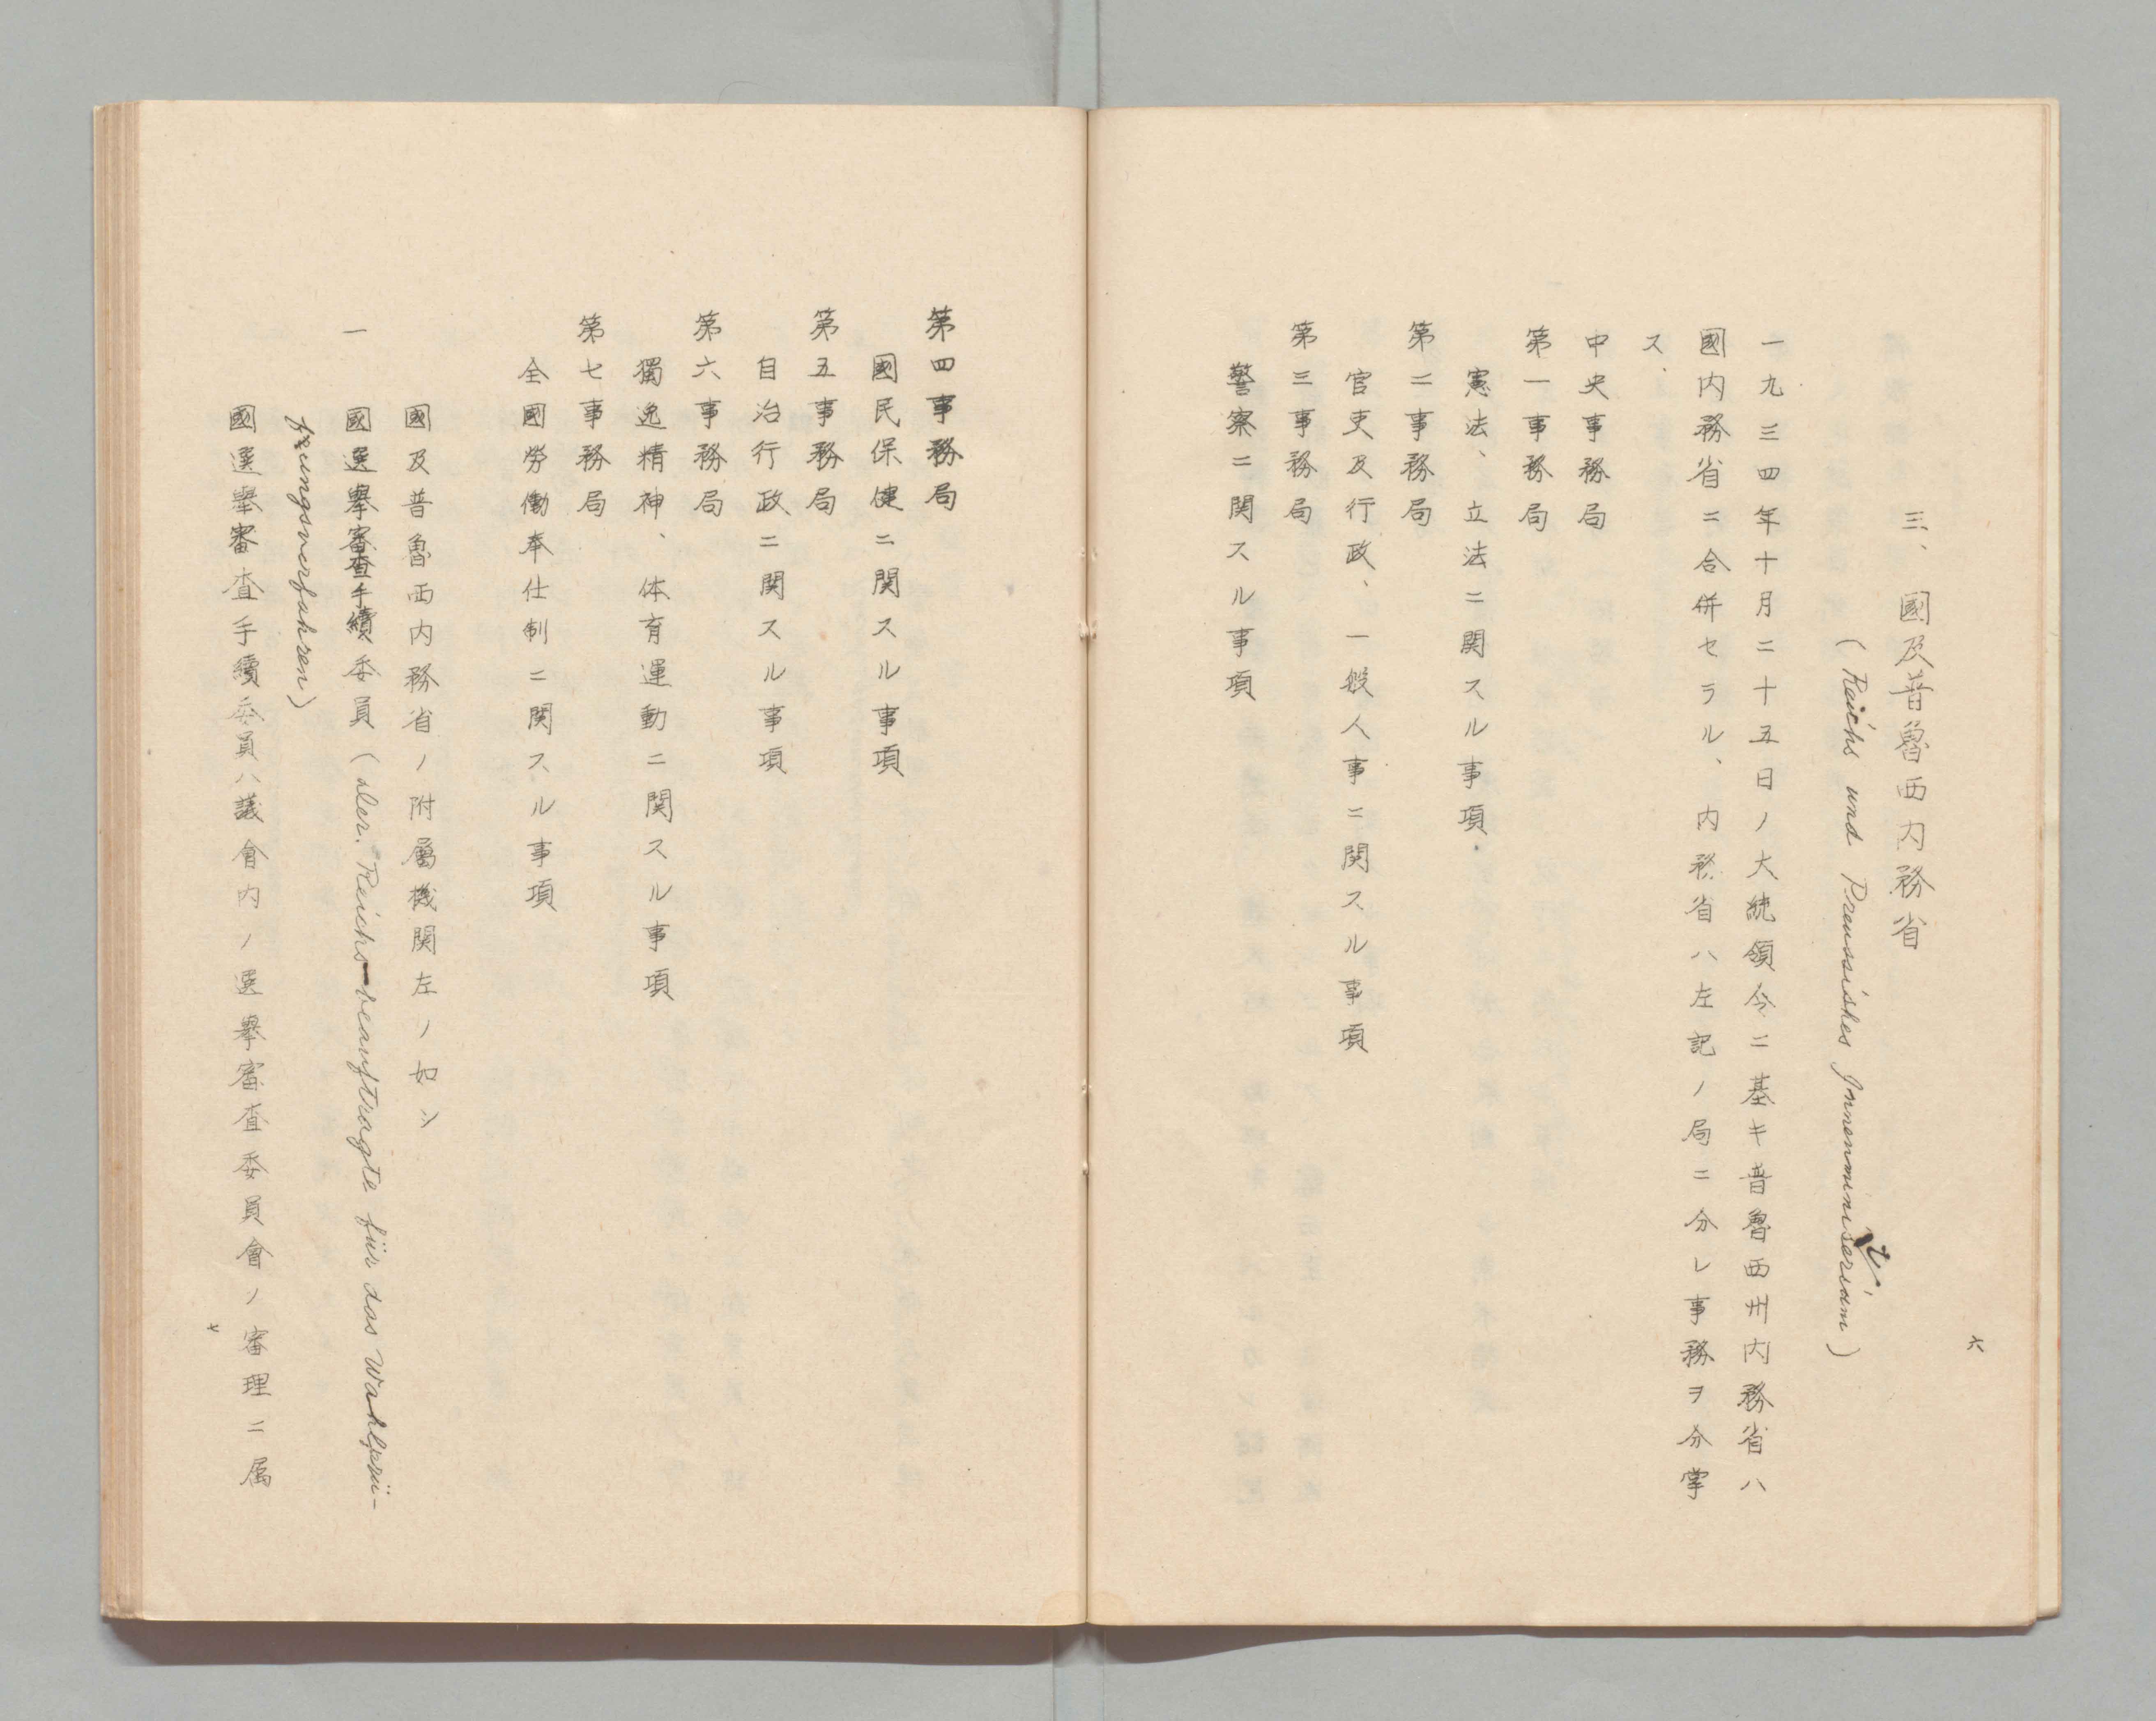 六
三、國及普魯西内務省
(Reichs und Preussishes Innenministerium)
一九三四年十月二十五日ノ大統領令ニ基キ普魯西州内務省ハ
國内務省ニ合併セラル、内務省ハ左記ノ局ニ分レ事務ヲ分掌
ス、
中央事務局
第一事務局
憲法、立法ニ関スル事項.
第二事務局
官吏及行政、一般人事ニ関スル事項
第三事務局
警察ニ関スル事項
第四事務局
國民保健ニ関スル事項
第五事務局
自治行政ニ関スル事項
第六事務局
獨逸精神、体育運動ニ関スル事項
第七事務局
全國勞働奉仕制ニ関スル事項
國及普魯西内務省ノ附屬機関左ノ如シ
一 國選擧審査手續委員(der. Reichs-beauftragte für das Wahlprü-
fungsverfahren)
國選擧審査手續委員ハ議會内ノ選擧審査委員會ノ審理ニ属
七